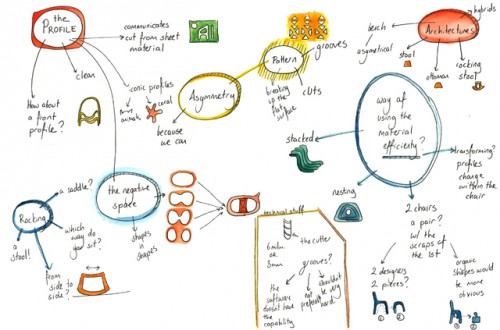 the
PROFILE
communicates
cut from sheet
material
clean
iconic profiles
coral
animals
How about
a front
profile?
Asymmetry
because we
can
Pattern
grooves
cuts
breaking
up the
flat
surface
Architectures
hybrids
bench
asymetrical
stool
ottoman
rocking
stool
way of
using the
material
efficiently?
stacked
nesting
transforming?
profiles
change
within the
chair
2 chairs
a pair?
w/ the
scraps of
the 1st
2 designers
2 pieces?
organic
shapes would
be more
obvious
1
2
1
2
the negative
space
shapes
in
shapes
Rocking
a saddle?
a stool!
which way
do you
sit?
from
side to
side?
technical stuff
6mm
or
8mm
the cutter
grooves?
the
software
doesnt have
the
capability
not
preferred
shouldn't
be very
hard